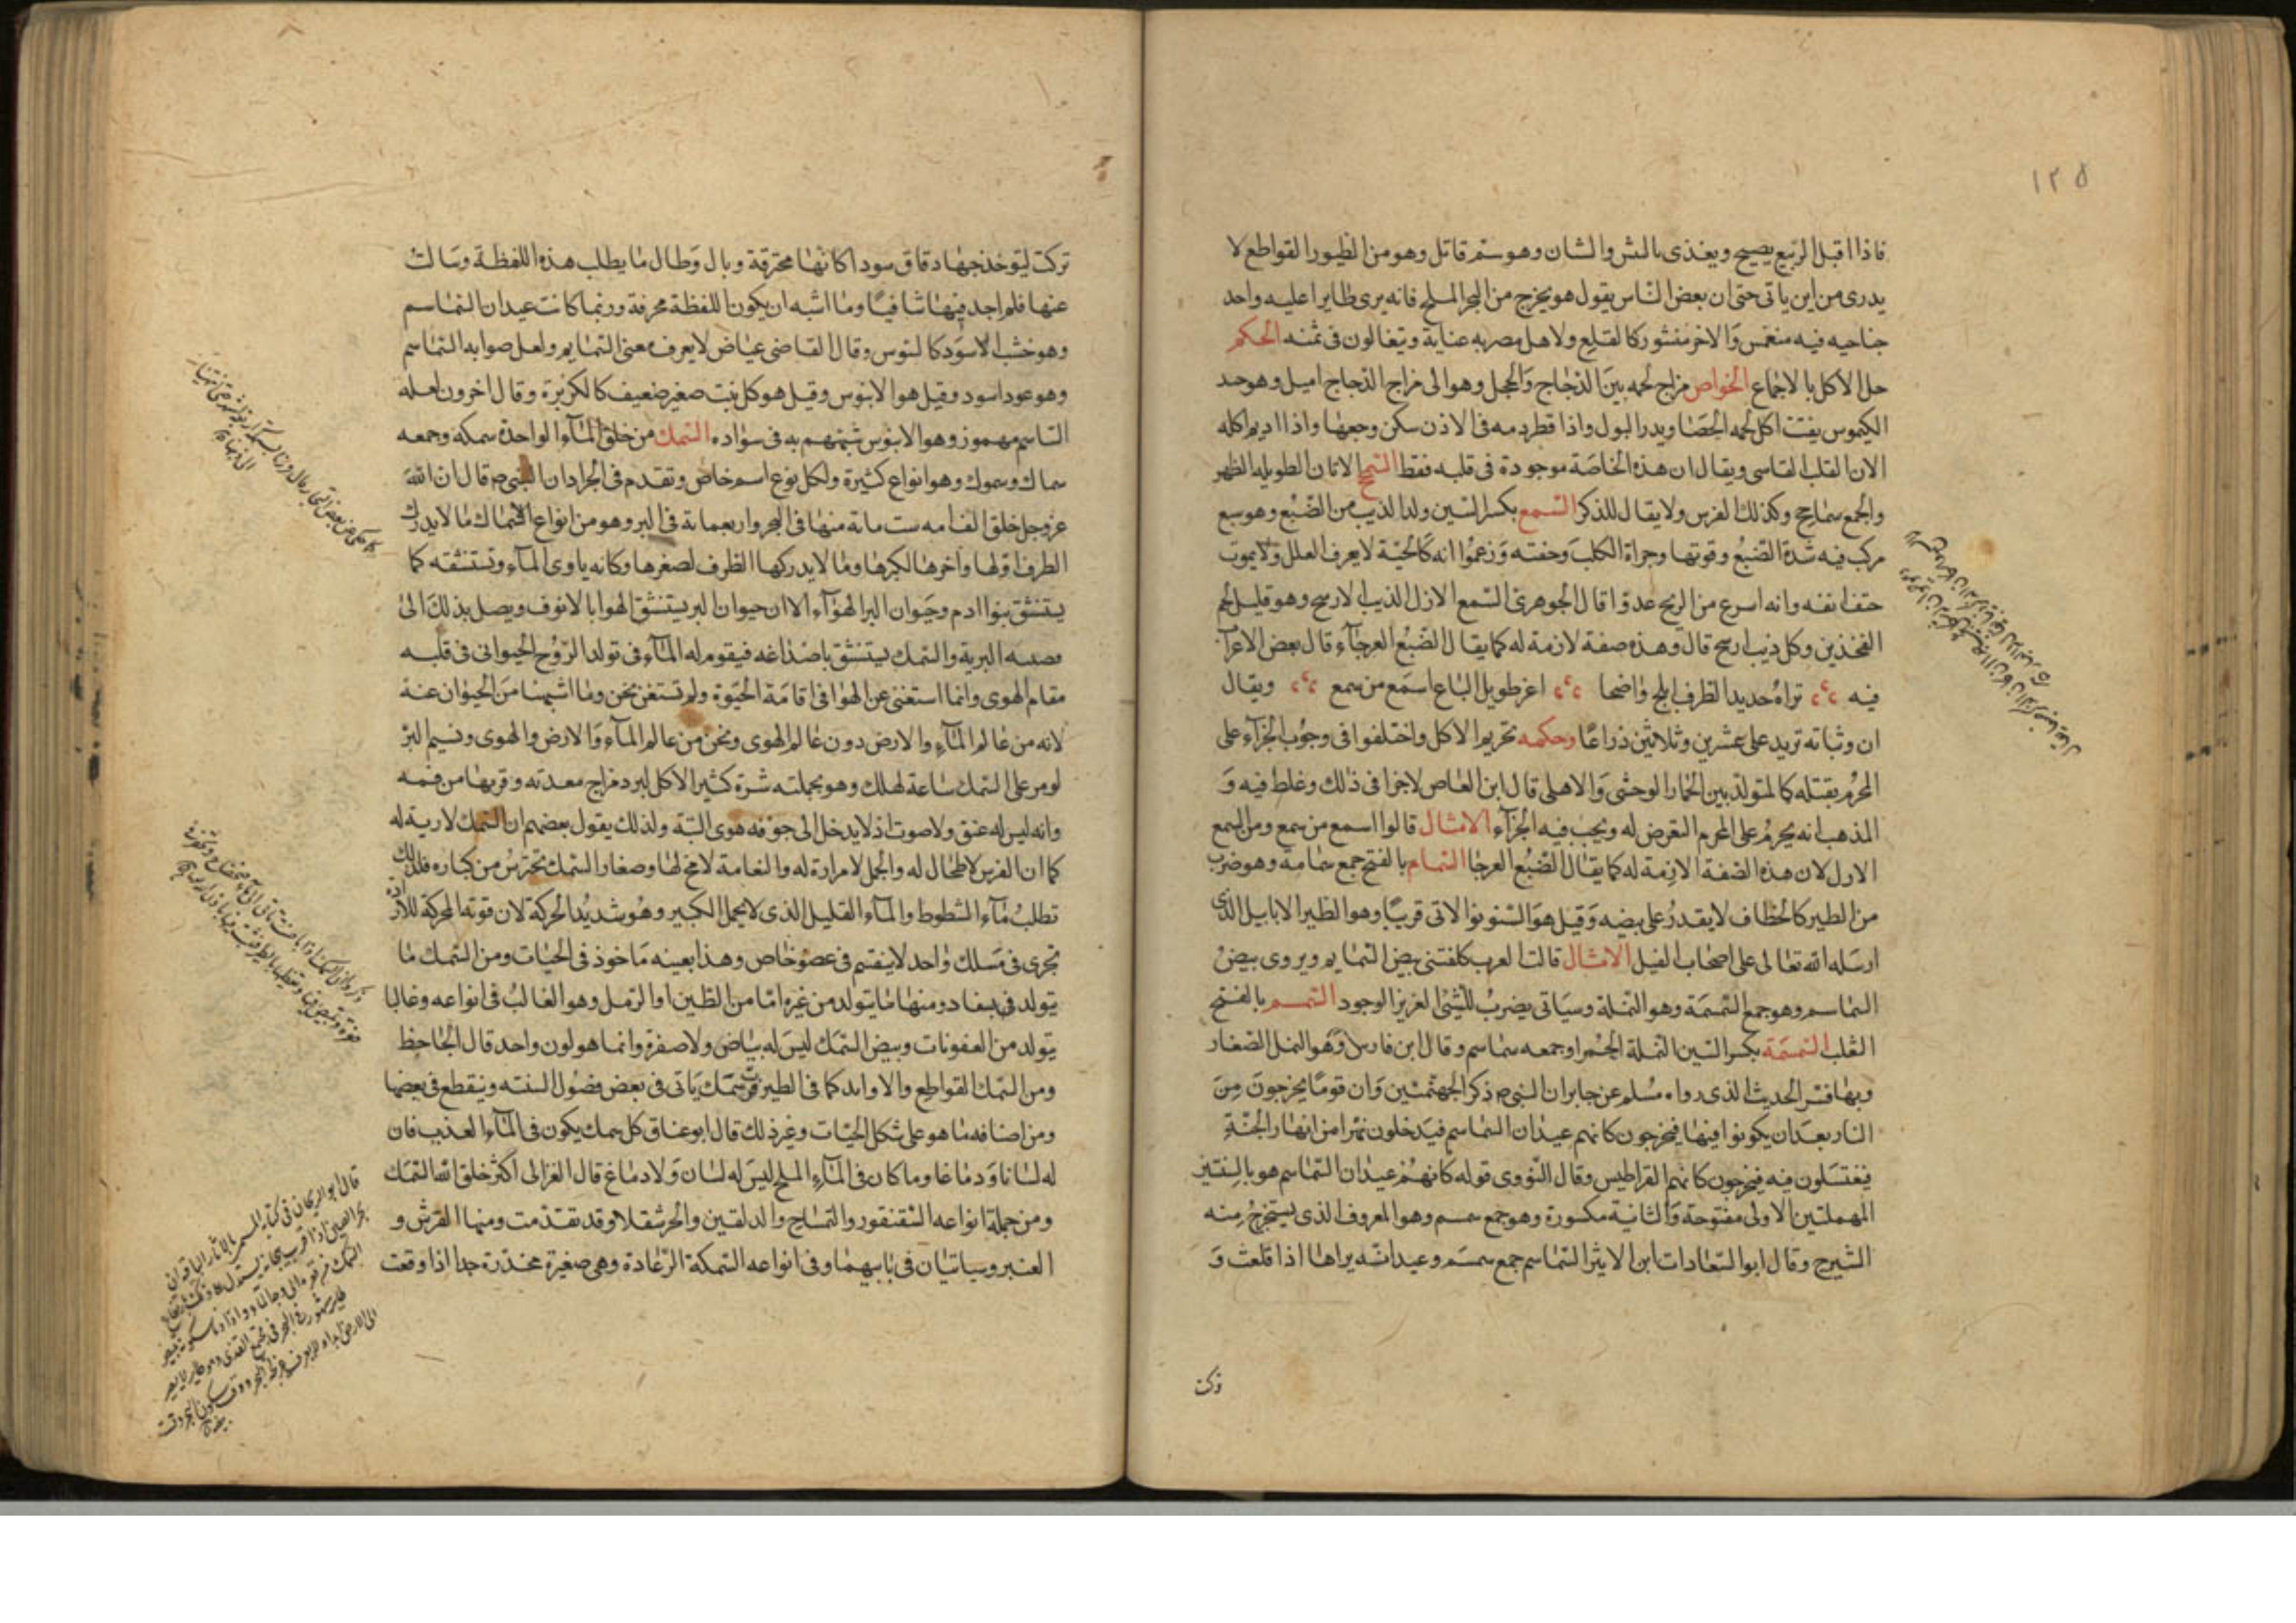 ١٢٥
فاذا اقبل الربيع يصيح ويغذى بالبش والبشان وهو سم قاتل وهو من الطيور القواطع لا
يدرى من اين ياتى حتى ان بعض الناس يقول هو يخرج من البحر الملح فانه يرى طايرا عليه واحد
جناحيه فيه منغمس والاخر منشور كالقلع ولاهل مصر به عناية ويتغالون فى ثمنه الحكم
حل الاكل بالاجماع الخواص مزاج لحمه بين الدجاج والحجل وهو الى مزاج الدجاج اميل وهو جيد
الكيموس يفتت اكل لحمه الحصا ويدر البول واذا قطر دمه فى الاذن سكن وجعها واذا اديم اكله
الان القلب القاسى ويقال ان هذه الخاصة موجودة فى قلبه فقط السمحج الاتان الطويله الظهر
والجمع سماحج وكذلك الفرس ولا يقال للذكر السمع بكسر السين ولد الذيب من الضبع وهو سبع
مركب فيه شدة الضبع وقوتها وجراة الكلب وخفته وزعموا انه كالحية لا يعرف العلل ولا يموت
حتف انفه وانه اسرع من الريح عدوا قال الجوهرى السمع الازل الذيب الارسح وهو قليل لحم
الفخذين وكل ذيب ارسح قال وهذه صفة لازمة له كما يقال الضبع العرجآء قال بعض الاعراب
فيه تراه حديد الطرف ابلج واضحا اغر طويل الباع اسمع من سمع ويقال
ان وثباته تزيد على عشرين وثلاثين ذراعًا وحكمه تحريم الاكل واختلفوا فى وجوب الجزآء على
المحرم بقتله كالمتولد بين الحمار الوحشى والاهلى قال ابن العاص لا جزا فى ذلك وغلط فيه و
المذهب انه يحرم على المحرم التعرض له ويجب فيه الجزآء الامثال قالوا اسمع من سمع ومن السمع
الازل لان هذه الصفة لازمة له كما يقال الضبع العرجا السمام بالفتح جمع سمامة وهو ضرب
من الطير كالخطاف لا يقدر على بيضه وقيل هو السنونو الاتى قريبًا وهو الطير الابابيل الذى
ارسله الله تعالى على اصحاب الفيل الامثال قالت العرب كلفتنى بيض السمايم ويروى بيض
السماسم وهو جمع السمسمة وهو النملة وسياتى يضرب للشئ العزيز الوجود السمسم بالفتح
الثعلب السمسمة بكسر السين النملة الحمرا وجمعه سماسم وقال ابن فارس وهو النمل الصغار
وبها فسر الحديث الذى رواه مسلم عن جابر ان النبى م ذكر الجهنميين وان قومًا يخرجون من
النار بعد ان يكونوا فيها فيخرجون كانهم عيدان السماسم فيدخلون نهرا من انهار الجنة
فيغتسلون فيه فيخرجون كانهم القراطيس وقال النووى قوله كانهم عيدان السماسم هو بالسنتين
المهملتين الاولى مفتوحة والثانية مكسورة وهو جمع سمسم وهو المعروف الذى يستخرج منه
الشيرج وقال ابو السعادات ابن الاثير السماسم جمع سمسم وعيدانه يراها اذا قلعت و
تركت ليؤخذ حبها دقاق سودا كانها محترقة وبال وطال ما يطلب هذه اللفظة وسالت
عنها فلم اجد فيها شافيًا وما اشبه ان يكون اللفظة محرفة وربما كانت عيدان الساسم
وهو خشب الاسود كالبنوس وقال القاضى عياض لا يعرف معنى السمايم ولعل صوابه الساسم
وهو عود اسود وقيل هو الابنوس وقيل هو كل نبت صغير ضعيف كالكزبرة وقال اخرون لعله
الساسم مهموز وهو الابنوس شبههم به فى سواده السمك من خلق المآء الواحدة سمكة وجمعه
سماك وسموك وهو انواع كثيرة ولكل نوع اسم خاص وتقدم فى الجراد ان النبى م قال ان الله
عز وجل خلق الف امه ست ماية منها فى البحر واربعماية فى البر وهو من انواع الاسماك ما لا يدرك
الطرف اولها واخرها لكبرها وما لا يدركها الطرف لصغرها وكانه ياوى المآء وتستنشقه كما
يستنشق بنو ادم وحيوان البر الهوآء الا ان حيوان البر يستنشق الهوا بالانوف ويصل بذلك الى
قصبه البرية والسمك يستنشق باصداغه فيقوم له المآء فى تولد الروح الحيوانى فى قلبه
مقام الهوى وانما استغنى عن الهوا فى اقامة الحيوة ولم نستغن نحن وما اشبهنا من الحيوان عنه
لانه من عالم المآء والارض دون عالم الهوى ونحن من عالم المآء والارض والهوى ونسيم البر
لو مر على السمك ساعة لهلك وهو بجملته شره كثير الاكل لبرد مزاج معدته وقربها من فمه
وانه ليس له عنق ولا صوت اذ لا يدخل الى جوفه هوى البتة ولذلك يقول بعضهم ان السمك لا رية له
كما ان الفرس لا طحال له والجمل لا مرارة له والنعامة لا مخ لها وصغار السمك تحترس من كباره فلذلك
تطلب مآء الشطوط والمآء القليل الذى لا يحمل الكبير وهو شديد الحركة لان قوته المحركة للارادة
تجرى فى مسلك واحد لا ينقسم فى عضو خاص وهذا بعينه ماخوذ فى الحيات ومن السمك ما
يتولد فى بسفاد ومنها ما يتولد من غيره اما من الطين او الرمل وهو الغالب فى انواعه وغالبا
يتولد من العفونات وبيض السمك ليس له بياض ولا صفرة وانما هو لون واحد قال الجاحظ
ومن السمك القواطع والاوابد كما فى الطير فرب سمك ياتى فى بعض فصول السنته وينقطع فى بعضها
ومن اصنافه ما هو على شكل الحيات وغير ذلك قال ابو عناق كل سمك يكون فى المآء العذب فان
له لسانا ودماغا وما كان فى المآء الملح ليس له لسان ولا دماغ قال الغزالى اكثر خلق الله السمك
ومن جملة انواعه السقنقور والتمساح والدلفين والحرشقلا وقد تقدمت ومنها القرش و
العنبر وسياتيان فى بابيهما وفى انواعه السمكة الرعادة وهى صغيرة مخدرة جدا اذا وقعت